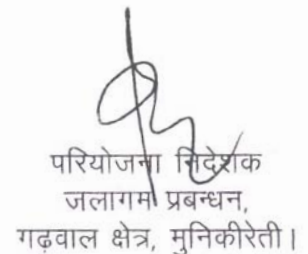 परियोजना निदेशक
जलागम प्रबन्धन,
गढ़वाल क्षेत्र, मुनिकीरेती।